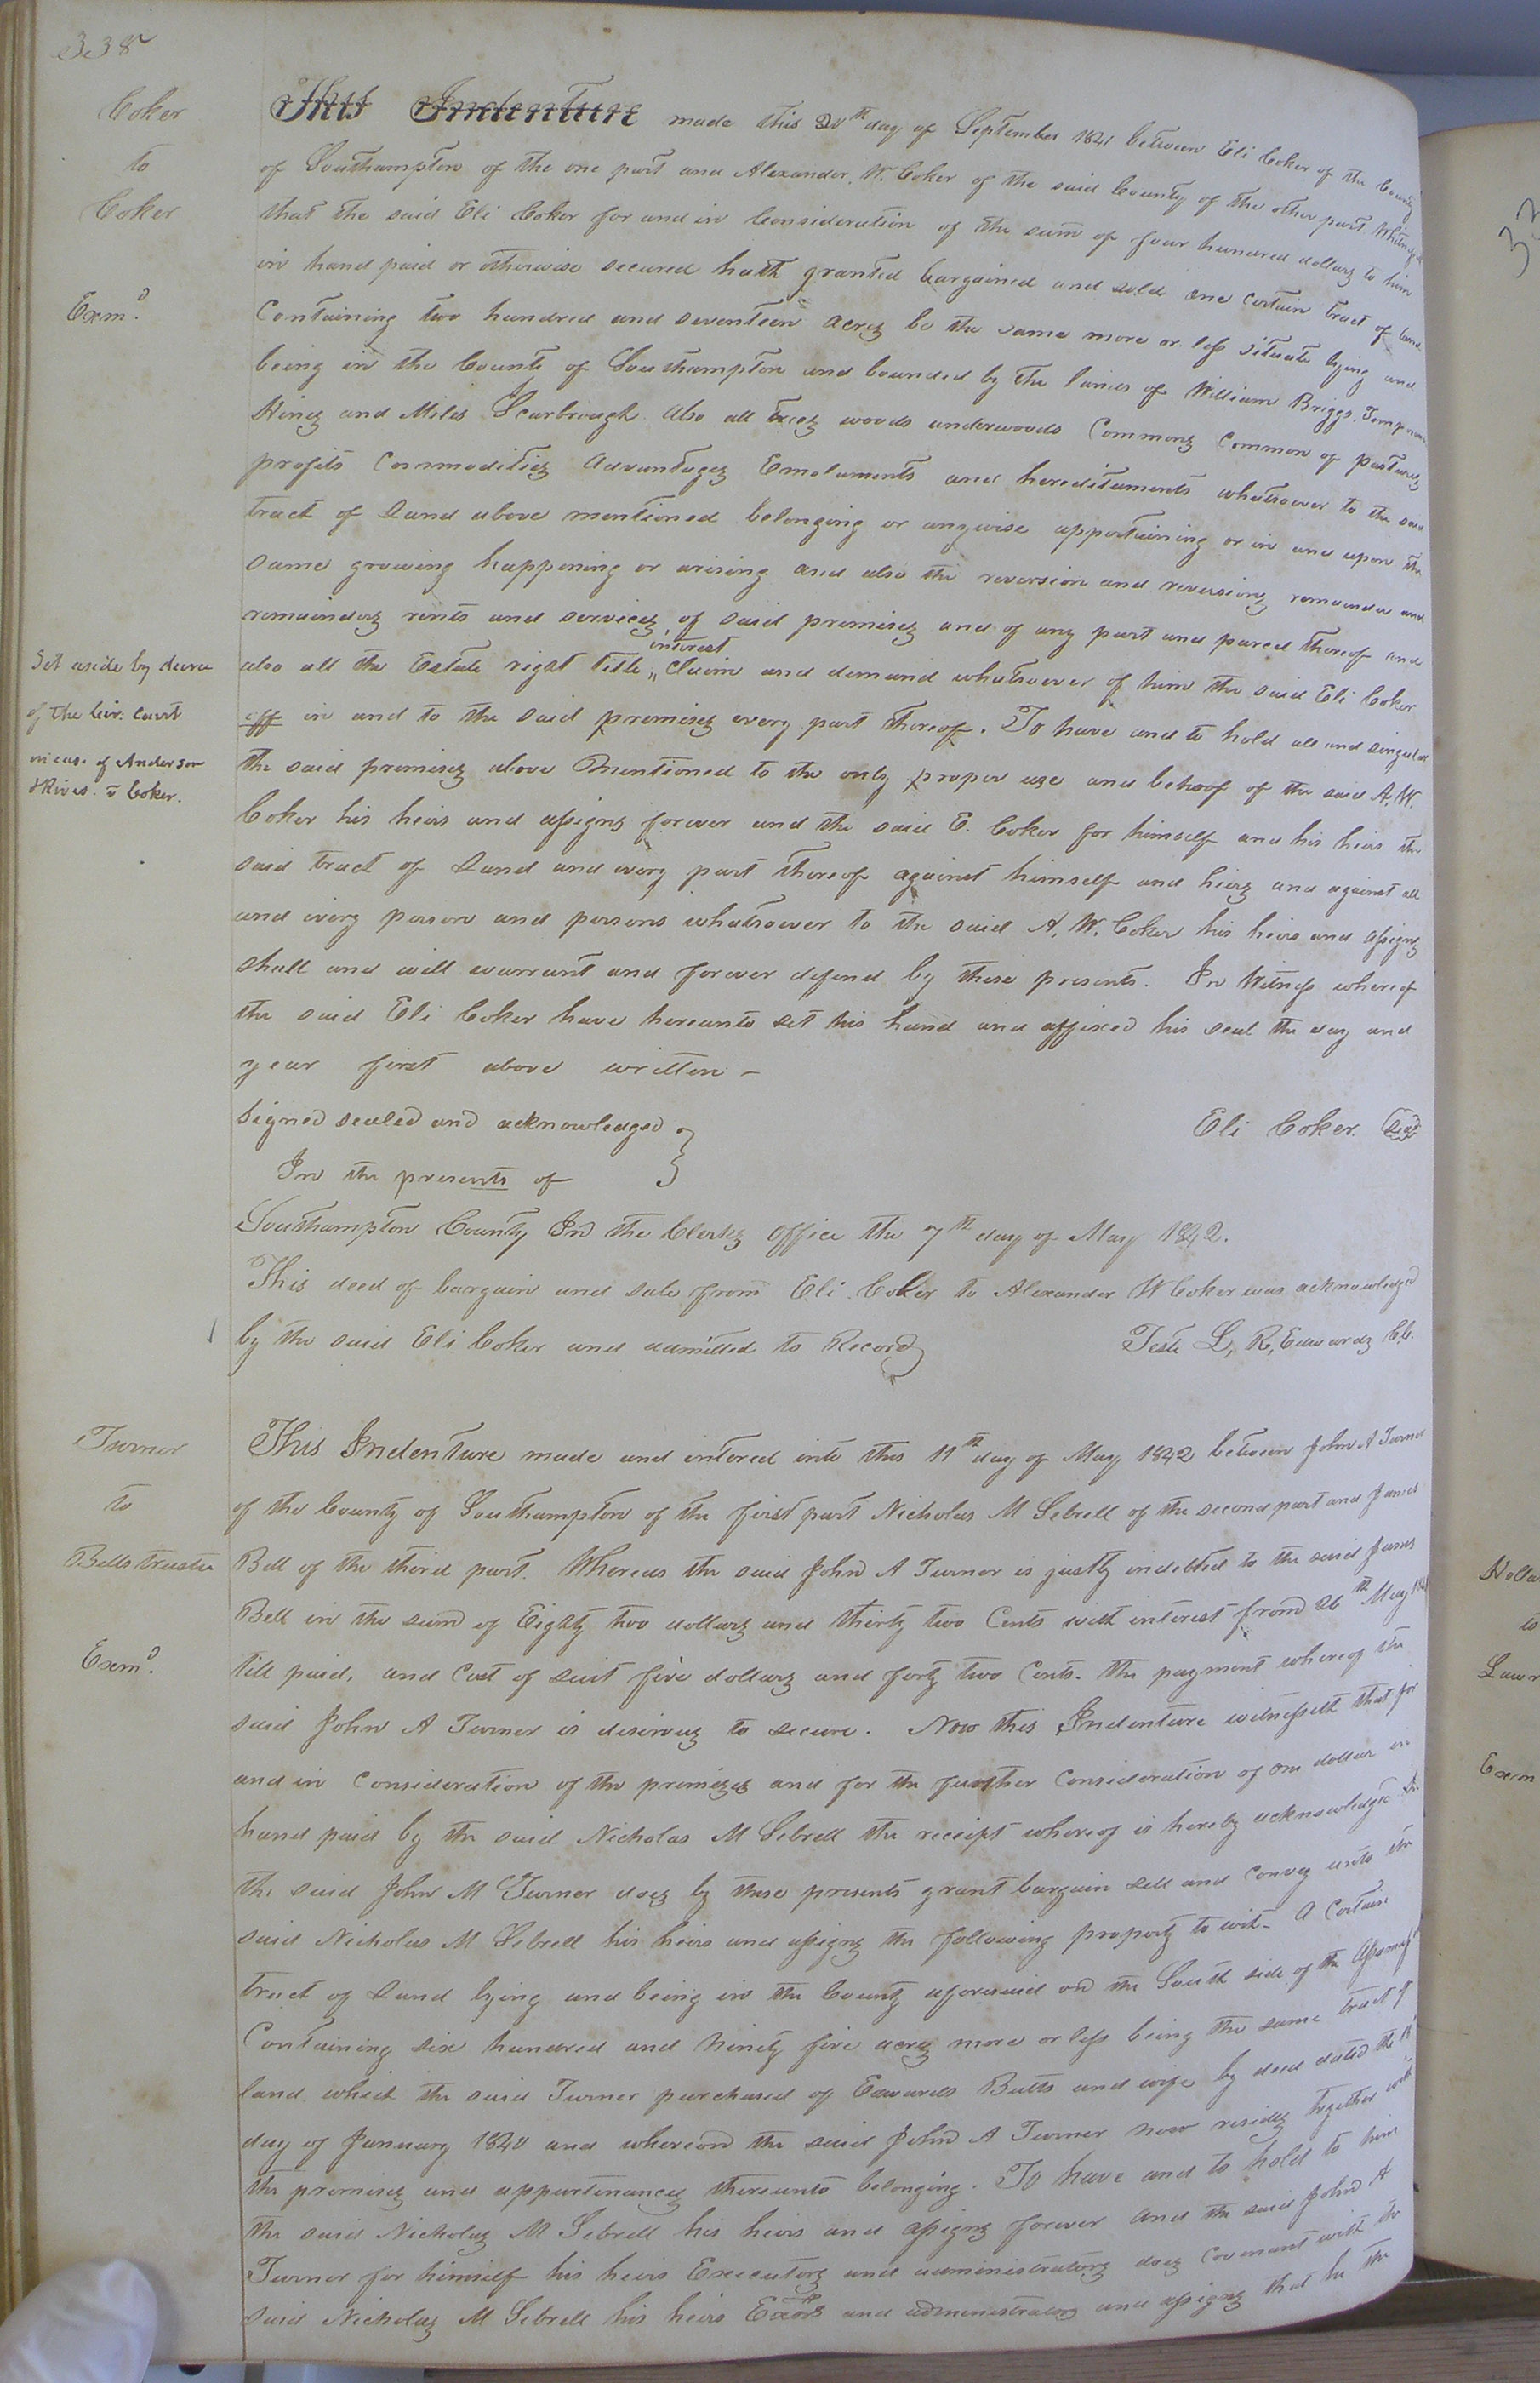 338
Coker
to
Coker
Exmd.
This Indenture made this 20th day of September 1841 between Eli Coker of the County
of Southampton of the one part and Alexander. W. Coker of the said County of the other part
that the said Eli Coker for and in Consideration of the sum of four hundred dollars to him
in hand paid or otherwise secured hath granted bargained and sold one certain tract of land
Containing two hundred and seventeen acres be the same more or less situate lying and
being in the County of Southampton and bounded by the lines of William Briggs.
and Miles Scarbrough. Also all trees woods underwoods Commons Common of pastures
profits Commodities Advantages Emoluments and hereditaments whatsoever to the said
tract of Land above mentioned belonging or anywise appertaining or in and upon the
same growing happening or arising and also the reversion and reversions remainder and
remainders rents and services of said premises and of any part and parcel thereof and
also all the Estate right title interest Claim and demand whatsoever of him the said Eli Coker
off in and to the said premises every part thereof. To have and to hold all and singular
the said premises above Mentioned to the only proper use and behoof of the said A. W.
Coker his heirs and assigns forever and the said E. Coker for himself and his heirs the
said tract of Land and every part thereof against himself and heirs and against all
and every person and persons whatsoever to the said A. W. Coker his heirs and assigns
shall and will warrant and forever defend by these presents. In Witness whereof
the said Eli Coker have hereunto set his hand and affixed his seal the day and
year first above written –
Set aside by decree
of the Cir: Court
in case of Anderson
v Coker.
Signed sealed and acknowledged }
In the presents of
Eli Coker. Seal
Southampton County In the Clerks Office the 7th day of May 1842.
This deed of bargain and sale from Eli Coker to Alexander W Coker was acknowledged
by the said Eli Coker and admitted to Record
Teste L, R, Edwards Clk.
Turner
to
Bells trustee
Exmd.
This Indenture made and entered into this 11th day of May 1842 between John A Turner
of the County of Southampton of the first part Nicholas M Sebrell of the second part and James
Bell of the third part. Whereas the said John A Turner is justly indebted to the said James
Bell in the sum of Eighty two dollars and thirty two Cents with interest from 26th May
till paid, and Cost of suit five dollars and forty two Cents. the payment whereof the
said John A Turner is desirous to secure. Now this Indenture witnesseth that for
and in Consideration of the premises and for the further Consideration of one dollar in
hand paid by the said Nicholas M Sebrell the receipt whereof is hereby acknowledged
the said John M Turner does by these presents grant bargain sell and Convey unto the
said Nicholas M Sebrell his heirs and assigns the following property to wit – A Certain
tract of Land lying and being in the County aforesaid on the South side of the
Containing six hundred and ninety five acres more or less being the same tract of
land which the said Turner purchased of Edwards Butts and wife by deed dated the
day of January 1840 and whereon the said John A Turner now resides together with
the premises and appurtenances thereunto belonging. To have and to hold to him
the said Nicholas M Sebrell his heirs and assigns forever And the said John A
Turner for himself his heirs Executors and administrators does Covenant with the
said Nicholas M Sebrell his heirs Exors and administrators and assigns that he the
to
Exm